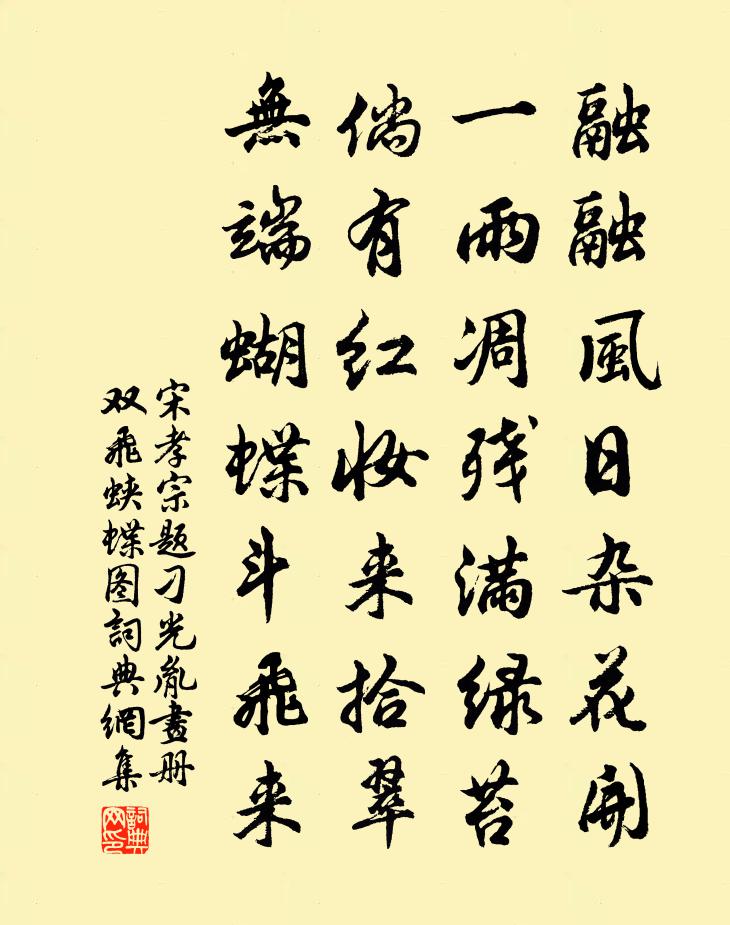 融融風日杂花開
一雨凋残满绿苔
倘有红妆来拾翠
無端蝴蝶斗飛来
宋孝宗题刁光胤畫册
双飛蛱蝶图詞典網集
詞典
网印